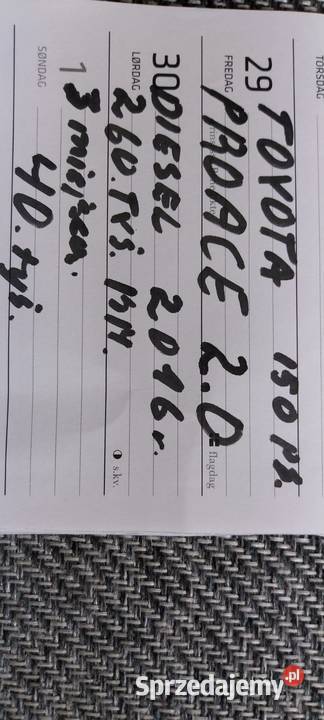 TORSDAG
29
FREDAG
TOYOTA 150 PS.
PROACE 2.0
flagdag
30
LØRDAG
DIESEL 2016r.
260.TYŚ. KM.
s.kv.
1
SØNDAG
3 miejscu.
40.tyś.
Sprzedajemy.pl